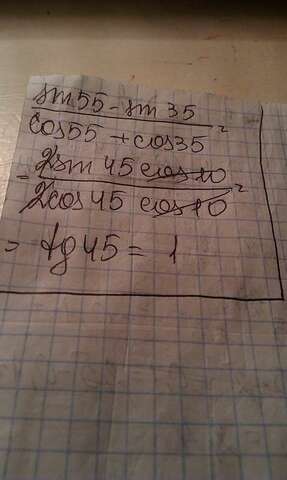 sin 55 - sin 35
cos 55 + cos 35 =
= 2 sin 45 cos 10
2 cos 45 cos 10 =
= tg 45 = 1